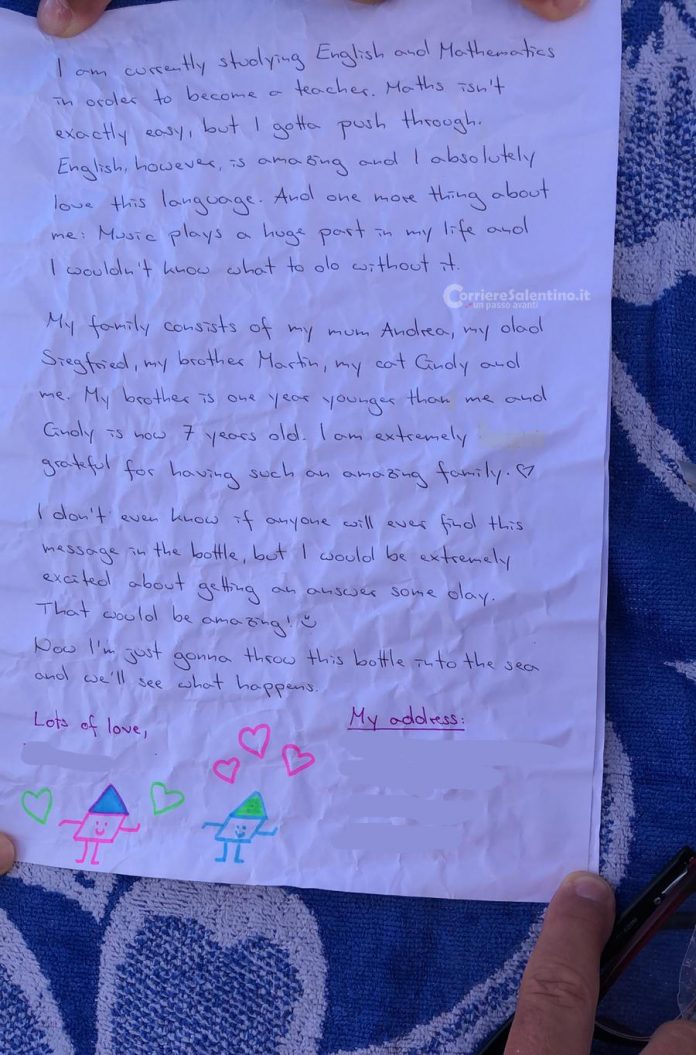 I am currently studying English and Mathematics
in order to become a teacher. Maths isn't
exactly easy, but I gotta push through.
English, however, is amazing and I absolutely
love this language. And one more thing about
me: Music plays a huge part in my life and
I wouldn't know what to do without it.
CorriereSalentino.it
un passo avanti
My family consists of my mum Andrea, my dad
Siegfried, my brother Martin, my cat Cindy and
me. My brother is one year younger than me and
Cindy is now 7 years old. I am extremely
grateful for having such an amazing family. ♡
I don't even know if anyone will ever find this
message in the bottle, but I would be extremely
excited about getting an answer some day.
That would be amazing! ☺
Now I'm just gonna throw this bottle into the sea
and we'll see what happens.
Lots of love,
My address: